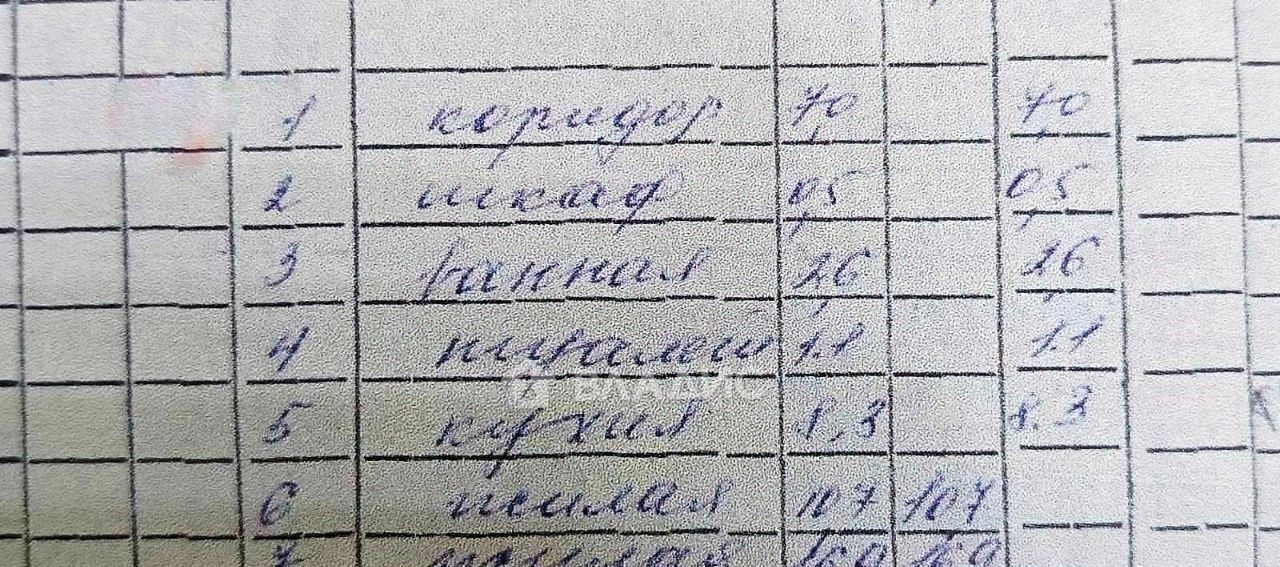 1 коридор 7,0 7,0
2 шкаф 0,5 0,5
3 ванная 2,6 2,6
4 1.1 1.1
ВЛАДИС
5 кухня 8,3 8,3
6 жилая 10,7 10,7
7 жилая